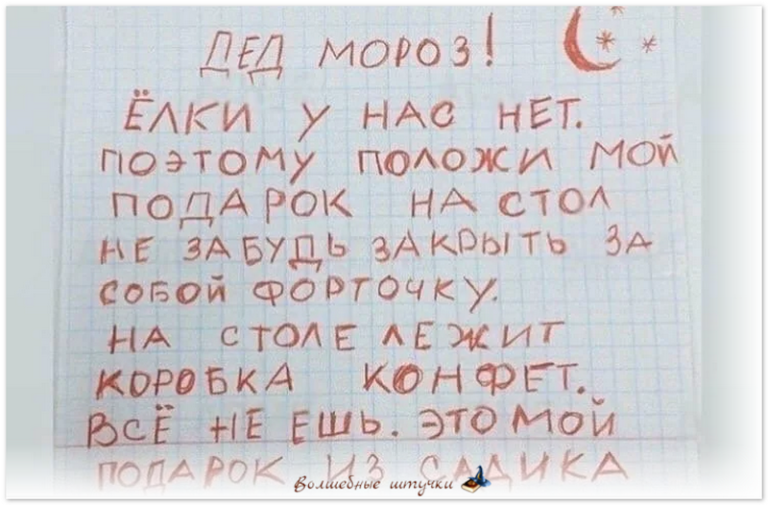 ДЕД МОРОЗ!
ЁЛКИ У НАС НЕТ.
ПОЭТОМУ ПОЛОЖИ МОЙ
ПОДАРОК НА СТОЛ
НЕ ЗАБУДЬ ЗАКРЫТЬ ЗА
СОБОЙ ФОРТОЧКУ.
НА СТОЛЕ ЛЕЖИТ
КОРОБКА КОНФЕТ.
ВСЁ НЕ ЕШЬ. ЭТО МОЙ
ПОДАРОК ИЗ САДИКА
Волшебные штучки